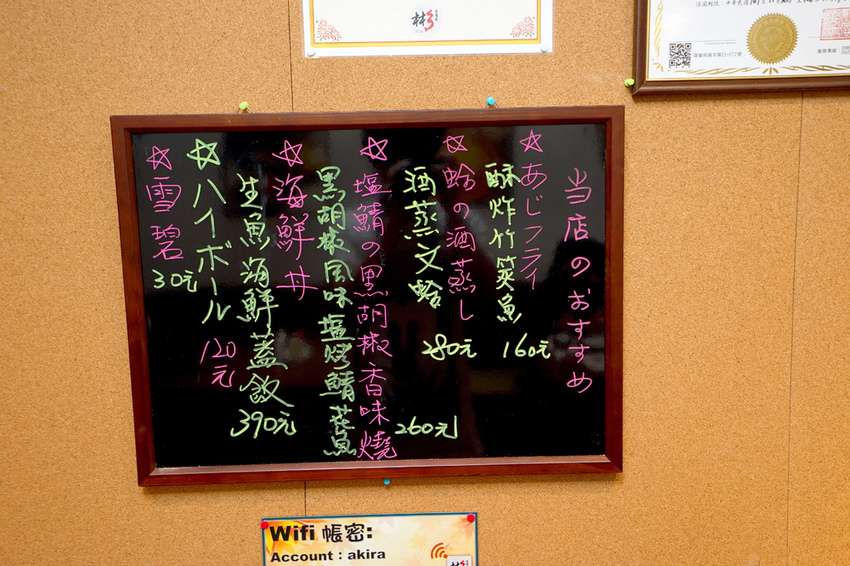 彬
当店のおすすめ
☆あじフライ
酥炸竹筴魚
160元
☆蛤の酒蒸し
酒蒸文蛤
280元
☆塩鯖の黒胡椒香味燒
黑胡椒風味塩烤鯖花魚
260元
☆海鮮丼
生魚海鮮蓋飯
390元
☆ハイボール
120元
☆雪碧
30元
Wifi 帳密:
Account : akira
彬